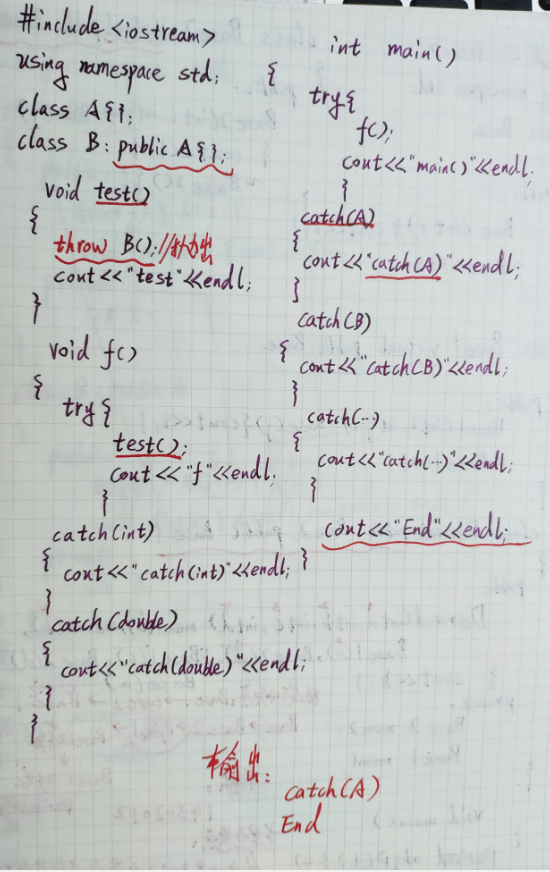 #include <iostream>
using namespace std;
class A{};
class B: public A{};
void test()
{
throw B(); //抛出
cout<<"test"<<endl;
}
void f()
{
try{
test();
cout<<"f"<<endl;
}
catch(int)
{
cout<<"catch(int)"<<endl;
}
catch(double)
{
cout<<"catch(double)"<<endl;
}
}
int main()
{
try{
f();
cout<<"main()"<<endl;
}
catch(A)
{
cout<<"catch(A)"<<endl;
}
catch(B)
{
cout<<"catch(B)"<<endl;
}
catch(...)
{
cout<<"catch(...)"<<endl;
}
cout<<"End"<<endl;
}
输出:
catch(A)
End